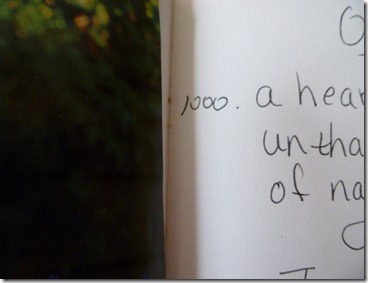 1000. a hear
untha
of na